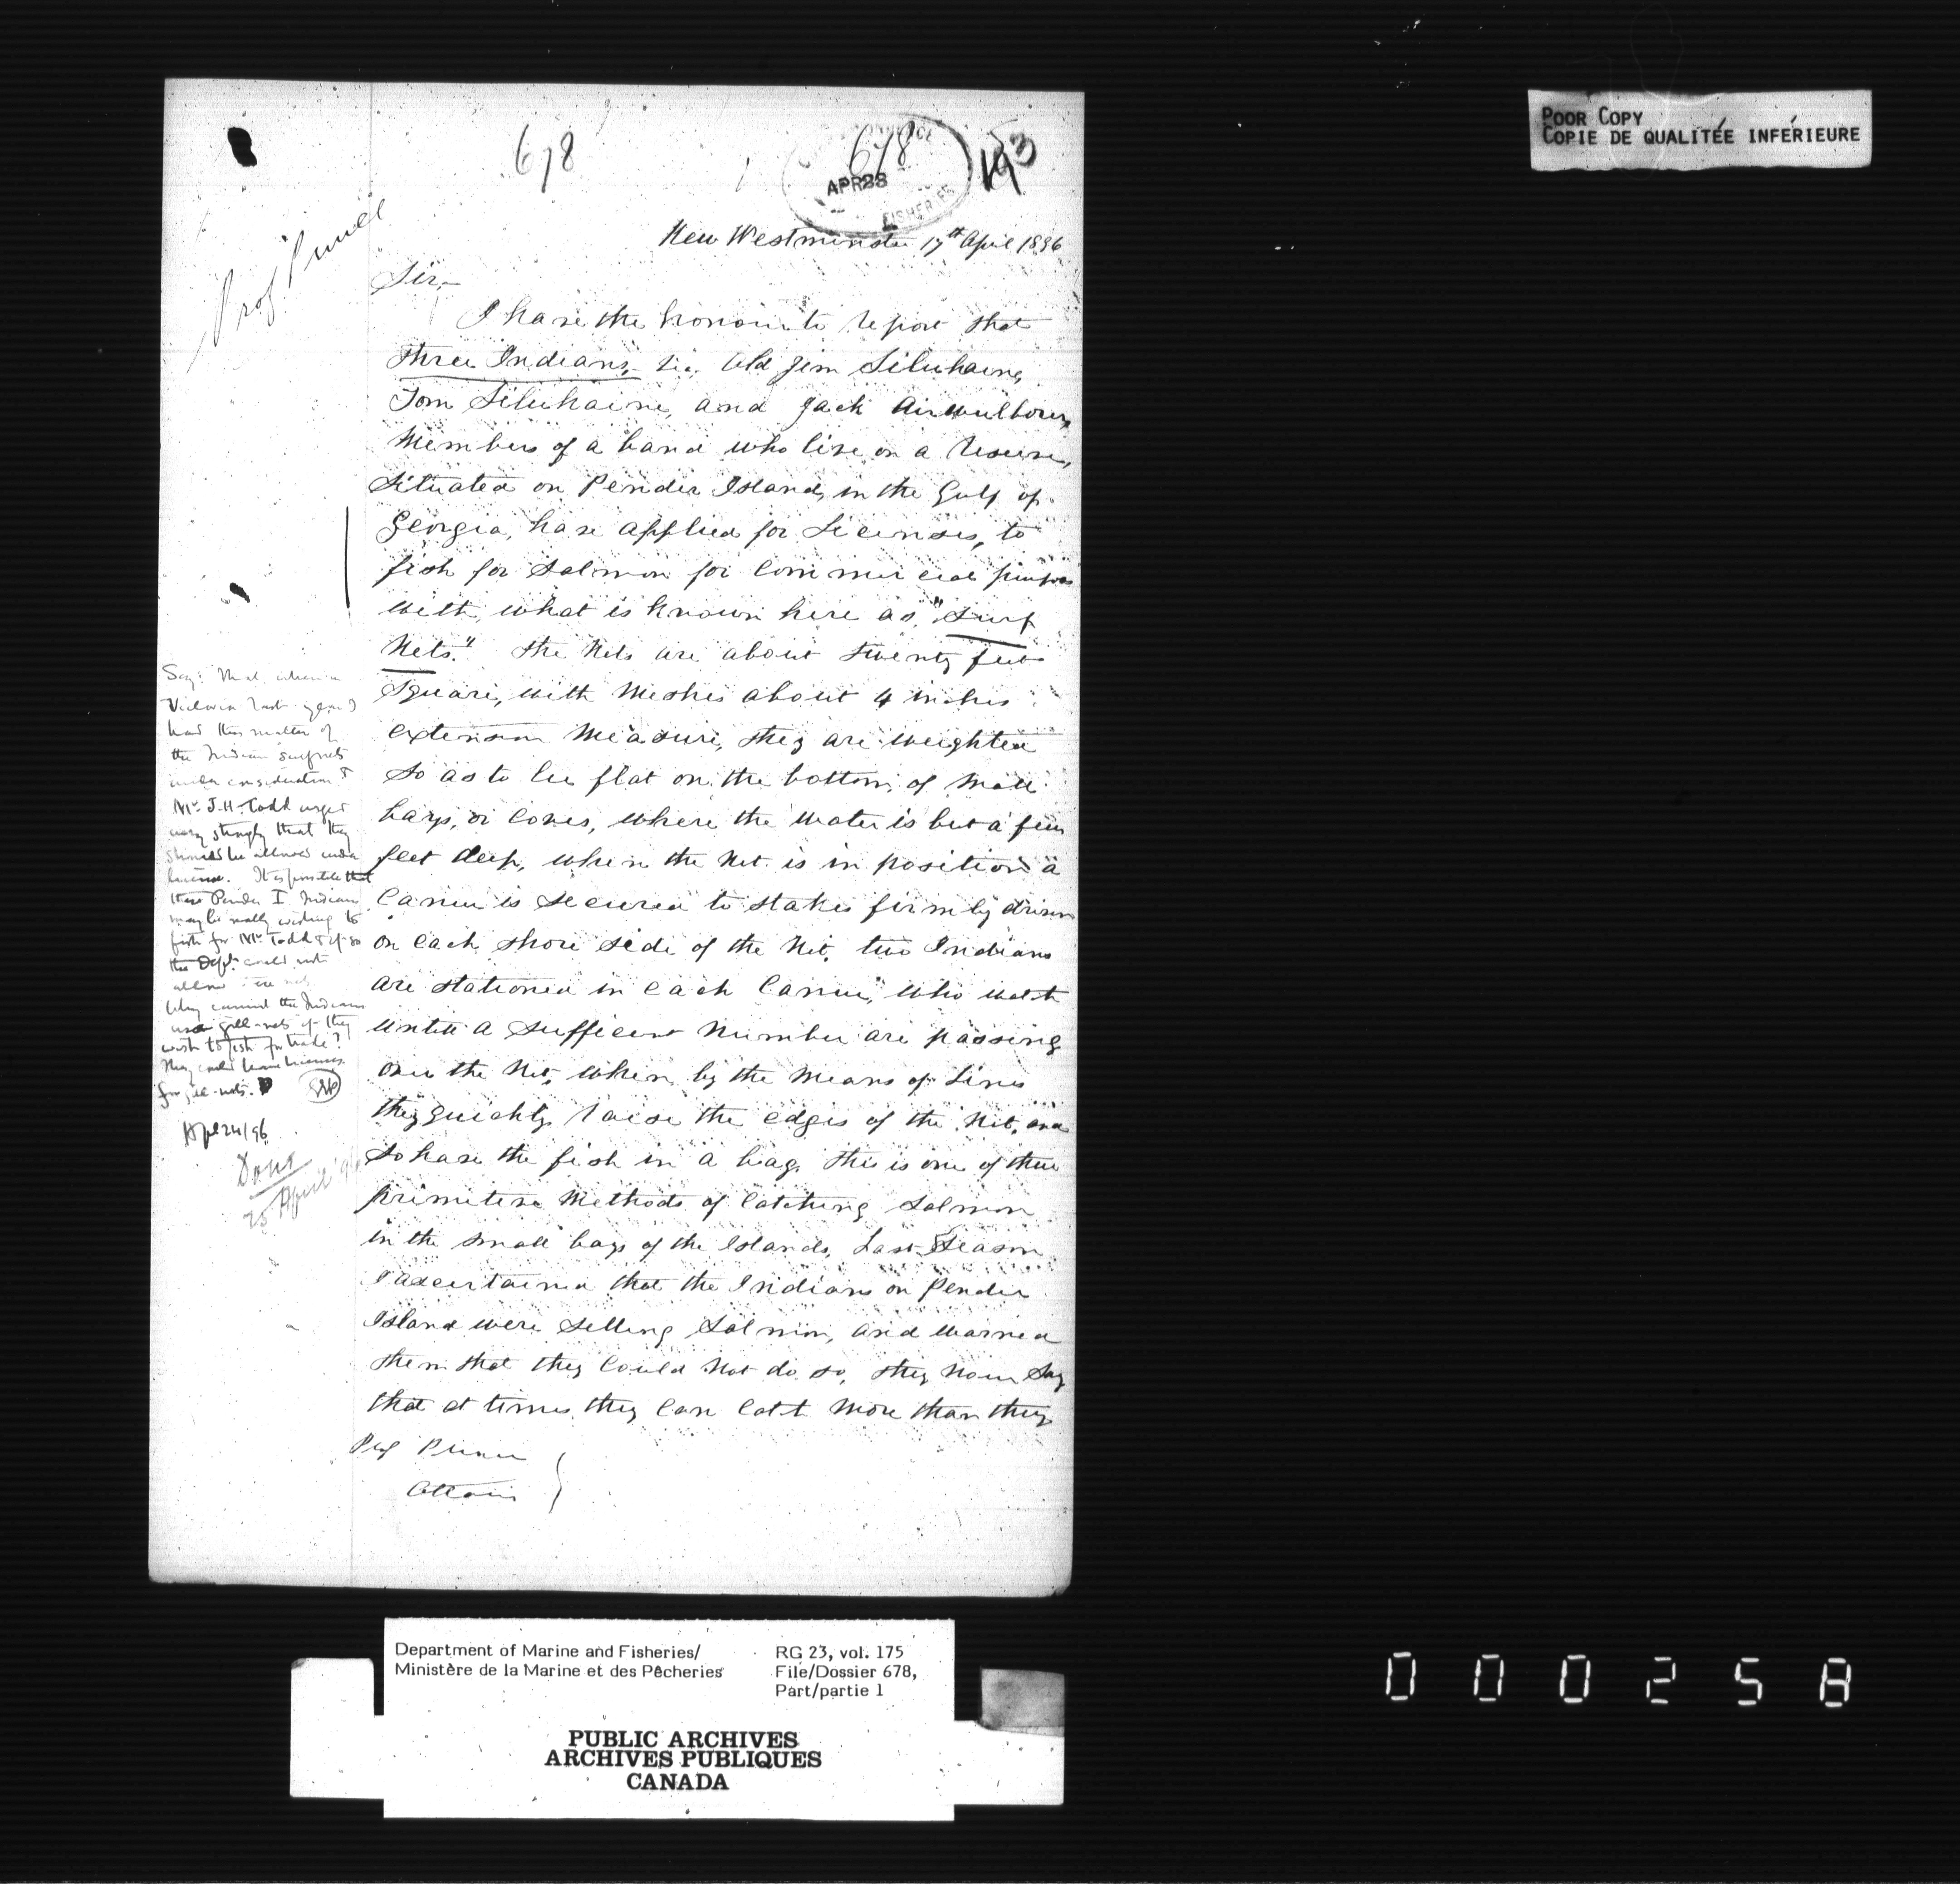 POOR COPY
COPIE DE QUALITÉE INFÉRIEURE
678
678
APR 23
FISHERIES
193
Prof Prince
New Westminster 17th April 1896
Sir,
I have the honour to report that
three Indians, viz, Old Jim
Tom and Jack
Members of a band who live on a Reserve,
situated on Pender Island, in the Gulf of
Georgia, have applied for Licenses, to
fish for Salmon for Commercial purposes
with, what is known here as, "Surf
Nets." the Nets are about twenty feet
square, with Meshes about 4 inches
extension Measure, they are weighted
so as to lie flat on the bottom, of small
bays, or coves, where the water is but a few
feet deep, when the Net is in position a
Canoe is secured to stakes firmly driven
on each shore side of the Net, two Indians
are stationed in each Canoe, who watch
until a sufficient Number are passing
over the Net, when, by the means of Lines
they quickly raise the edges of the Net, and
so have the fish in a bag. this is one of their
primitive Methods of Catching Salmon
in the small bays of the Islands, Last Season
I ascertained that the Indians on Pender
Island were selling Salmon, and warned
them that they Could Not do so, they now say
that at times they can catch More than they
Prof Prince
Ottawa
Say: that when in
Victoria last year I
had this matter of
the Indian surfnets
under consideration &
Mr J.H. Todd urged
very strongly that they
should be allowed under
license. It is possible that
these Pender I Indians
may be really wishing to
fish for Mr. Todd & if so
the Dept. could not
allow
Why cannot the Indians
use gill-nets if they
wish to fish for trade?
They could have licenses
for gill-nets.
Apl 24/96
Done
25 April '96
Department of Marine and Fisheries/
Ministère de la Marine et des Pêcheries
RG 23, vol. 175
File/Dossier 678,
Part/partie 1
PUBLIC ARCHIVES
ARCHIVES PUBLIQUES
CANADA
000258